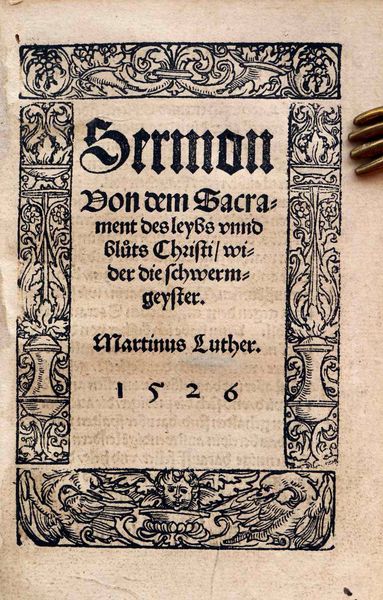 Sermon
Von dem Sacra-
ment des leybs vnnd
blůts Christi/ wi-
der die schwerm-
geyster.
Martinus Luther.
1526